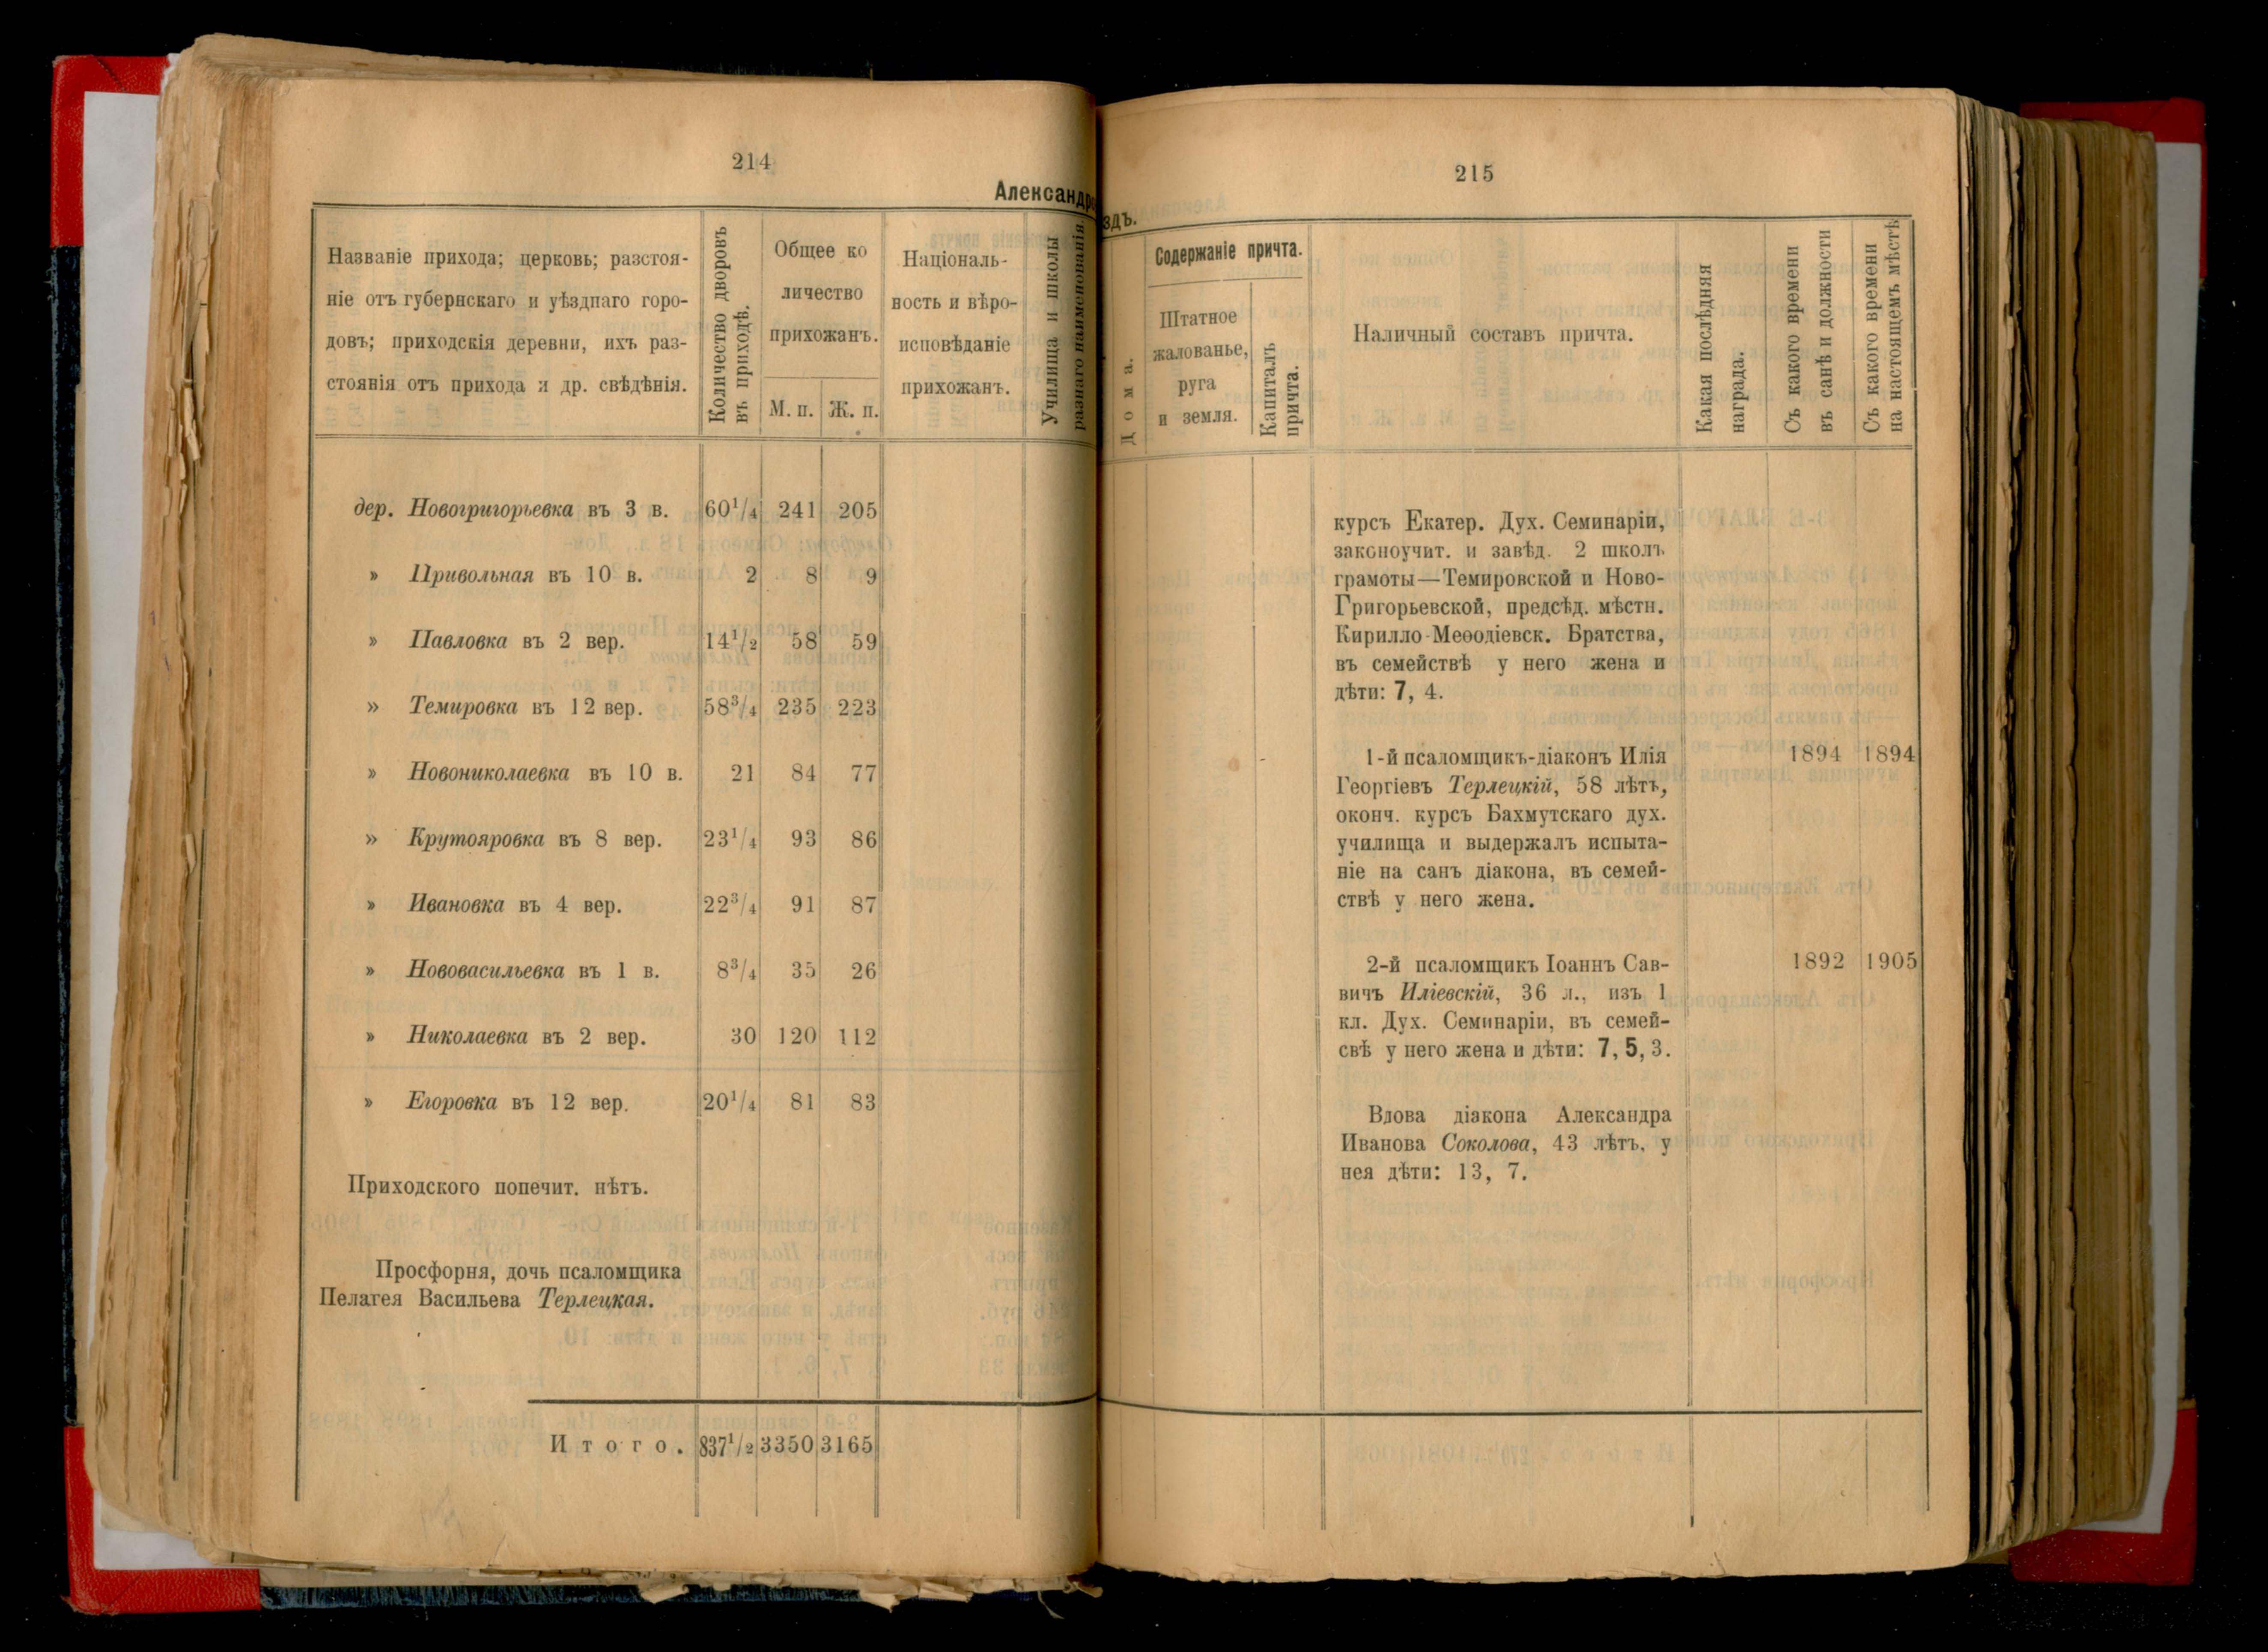 214
Александро
Названіе прихода; церковь; разстоя-
ніе отъ губернскаго и уѣзднаго горо-
довъ; приходскія деревни, ихъ раз-
стоянія отъ прихода и др. свѣдѣнія.
Количество дворовъ
въ приходѣ.
Общее ко
личество
прихожанъ.
М. п. Ж. п.
Національ-
ность и вѣро-
исповѣданіе
прихожанъ.
Училища и школы
разнаго наименованія.
дер. Новогригорьевка въ 3 в. 60¹/₄ 241 205
» Привольная въ 10 в. 2 8 9
» Павловка въ 2 вер. 14¹/₂ 58 59
» Темировка въ 12 вер. 58³/₄ 235 223
» Новониколаевка въ 10 в. 21 84 77
» Крутояровка въ 8 вер. 23¹/₄ 93 86
» Ивановка въ 4 вер. 22³/₄ 91 87
» Нововасильевка въ 1 в. 8³/₄ 35 26
» Николаевка въ 2 вер. 30 120 112
» Егоровка въ 12 вер. 20¹/₄ 81 83
Приходского попечит. нѣтъ.
Просфорня, дочь псаломщика
Пелагея Васильева Терлецкая.
Итого. 837¹/₂ 3350 3165
215
здъ.
Дома.
Содержаніе причта.
Штатное
жалованье,
руга
и земля.
Капиталъ
причта.
Наличный составъ причта.
Какая послѣдняя
награда.
Съ какого времени
въ санѣ и должности
Съ какого времени
на настоящемъ мѣстѣ
курсъ Екатер. Дух. Семинаріи,
законоучит. и завѣд. 2 школъ
грамоты—Темировской и Ново-
Григорьевской, предсѣд. мѣстн.
Кирилло-Меѳодіевск. Братства,
въ семействѣ у него жена и
дѣти: 7, 4.
1-й псаломщикъ-діаконъ Илія 1894 1894
Георгіевъ Терлецкій, 58 лѣтъ,
оконч. курсъ Бахмутскаго дух.
училища и выдержалъ испыта-
ніе на санъ діакона, въ семей-
ствѣ у него жена.
2-й псаломщикъ Іоаннъ Сав- 1892 1905
вичъ Иліевскій, 36 л., изъ 1
кл. Дух. Семинаріи, въ семей-
свѣ у него жена и дѣти: 7, 5, 3.
Вдова діакона Александра
Иванова Соколова, 43 лѣтъ, у
нея дѣти: 13, 7.